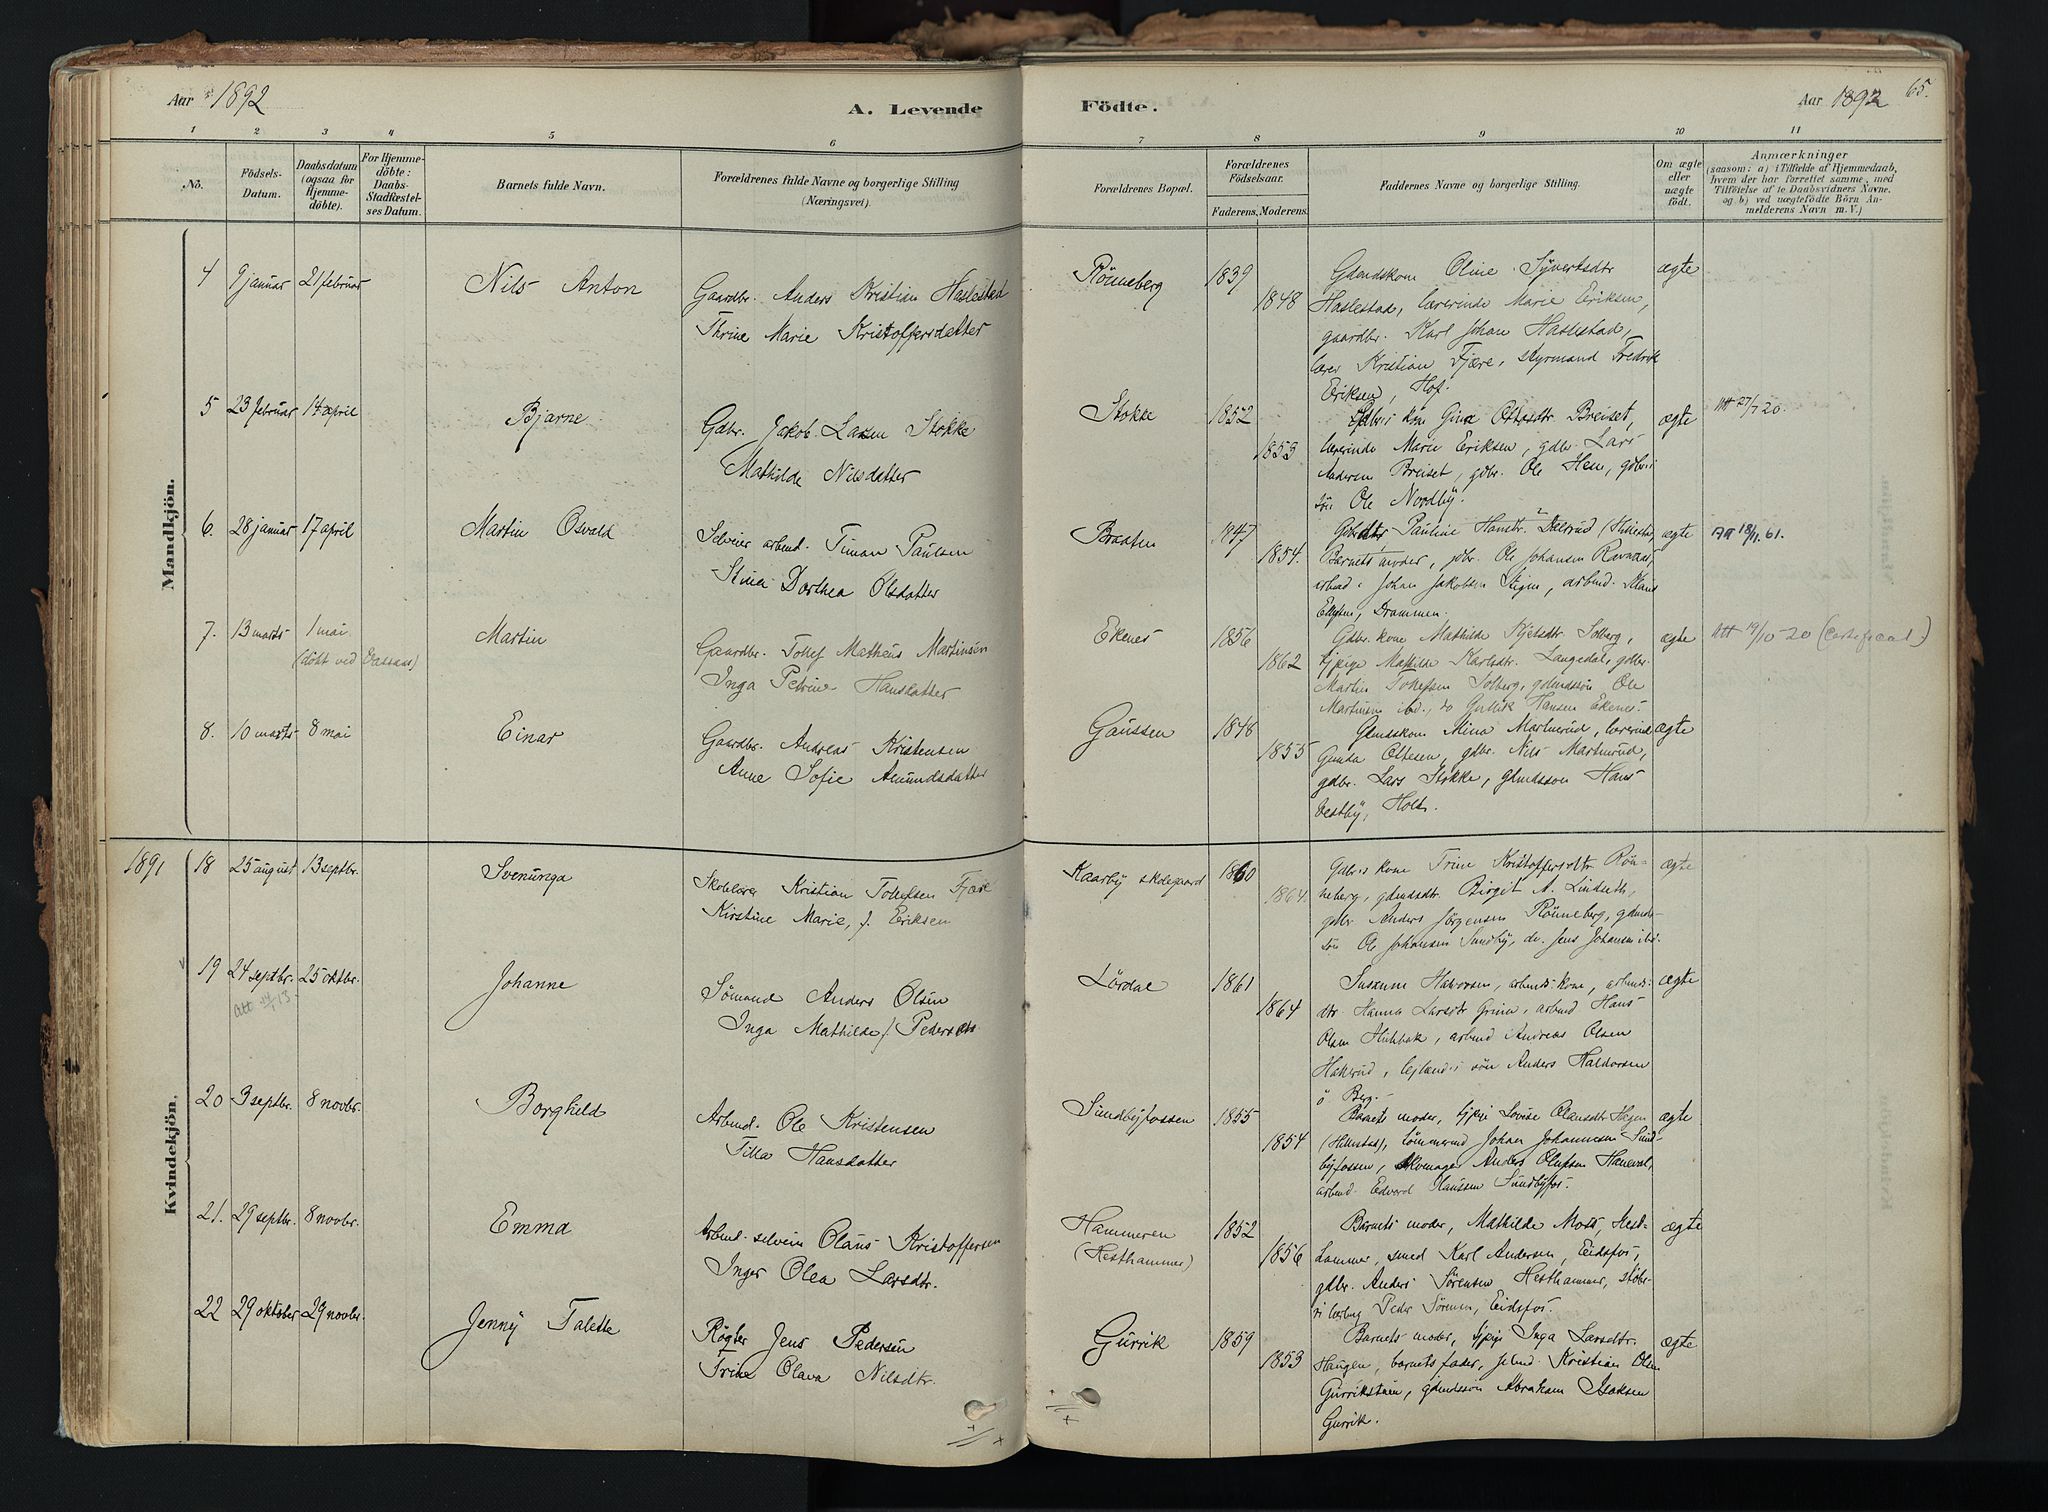 Aar 1892
A. Levende
Födte.
Aar 1892
65.
1 2 3 4 5 6 7 8 9 10 11
No.
Födsels-
Datum.
Daabsdatum
(ogsaa for
Hjemme-
döbte).
For Hjemme-
döbte:
Daabs-
Stadfæstel-
ses Datum.
Barnets fulde Navn.
Forældrenes fulde Navne og borgerlige Stilling
(Næringsvei).
Forældrenes Bopæl.
Forældrenes
Födselsaar.
Faderens. Moderens.
Faddernes Navne og borgerlige Stilling.
Om ægte
eller
uægte
födt.
Anmærkninger
(saasom: a) i Tilfælde af Hjemmedaab,
hvem der har forrettet samme, med
Tilföielse af to Daabsvidners Navne.
og b) ved uægtefödte Börn An-
melderens Navn m. V.)
Mandkjön.
4 9 januar 21 februar Nils Anton
Gaardbr. Anders Kristian Haslestad
Thrine Marie Kristoffersdatter
Rönneberg 1839 1848
Gdmdskone Oline Syvertsdtr
Haslestad, lærerinde Marie Eriksen,
gaardbr. Karl Johan Haslestad,
lærer Kristian Fjære, styrmand Fredrik
Eriksen, Hof.
ægte
5 23 februar 14 april Bjarne
Gdbr. Jakob Larsen Stokke
Mathilde Nilsdatter
Stokke 1852 1853
Gdbr.s kone Gina Breiset,
lærerinde Marie Eriksen, gdbr. Lars
Andersen Breiset, gdbr. Ole Hem, gdbr.s
sön Ole Nordby.
ægte
Att 27/7 20.
6. 28 januar 17 april Martin Osvald
Selveier arbeid. Timan Paulsen
Stina Dorthea Olsdatter
Braaten 1847 1854.
Gdbrdtr Pauline Hansdtr. Dalsrud
Barnets moder, gdbr. Ole Johansen Ravnaas,
arbeid. Johan Jakobsen Stigen, arbeid.
Drammen.
ægte
18/11.61.
7. 13 marts 1 mai Martin
(döbt ved Vassaas)
Gaardbr. Tollef Matheus Martinsen
Inga Petrine Hansdatter
Ekenes 1856 1862
Gdbr. kone Mathilde Solberg,
pige Mathilde Karlsdtr. Langedal, gdbr.
Martin Tollefsen Solberg, gdmdssön Ole
Martinsen ibd., do Gullik Hansen Ekenes.
ægte
Att 19/10-20 (Certificat)
8. 10 marts 8 mai Einar
Gaardbr. Andreas Kristensen
Anne Sofie Amundsdatter
Gaussen 1848 1855
Gdmdskone Mina Martinrud, lærerinde
Gunda Oltesen, gdbr. Nils Martinrud,
gdbr. Lars Stokke, gdmdssön Hans
Vestby, Holt.
ægte
Kvindekjön.
1891
18 25 august 13 septbr. Svenunga
Skolelærer Kristian Tollefsen Fjære
Kirstine Marie, f. Eriksen
Kaarby skolegaard 1860 1864.
Gdbr.s kone Trine Kristoffersdtr Rön-
neberg, gdmdsdtr. Birgit A. Linderth,
gdbr. Anders Jörgensen Rönneberg, gdmds-
sön Ole Johansen Sundby, do. Jens Johansen ibd.
ægte
19 24 septbr. 25 oktbr. Johanne
Sömand Anders Olsen
Inga Mathilde f. Pedersen
Lördal 1861 1864
Susanne Halvorsen, arbeid.s kone, arbeid.s
dtr. Hanna Larsdtr Grina, arbeid Hans
Olsen, arbeid Andreas Olsen
Hakerud, sön Anders Haldorsen
ö Berg.
ægte
20 3 septbr. 8 novbr. Borghild
Arbeid. Ole Kristensen
Tilla Hansdatter
Sundbyfossen 1855 1854
Barnets moder, pige Lovise Olausdtr Hagen
(Hillestad), tömmermd Johan Johannesen Sund-
byfossen, Anders Olufsen Haneval,
arbeid. Edvard Olaussen Sundbyfos.
ægte
21. 29 septbr. 8 novbr. Emma
Arbeid. selveier Olaus Kristoffersen
Inger Olea Larsdtr.
Hammeren
(Hesthammer)
1852 1856
Barnets moder, Mathilde Moss, Hest-
hammer, smed Karl Andersen, Eidsfos,
gdbr. Anders Sörensen Hesthammer, stöbe-
rilærling Peder Sörensen, Eidsfos.
ægte
22 29 oktober 29 novbr. Jenny Talette
Røgter Jens Pedersen
Trine Olava Nilsdtr.
Gurrik 1859 1853
Barnets moder, pige Inga Larsdtr.
Haugen, barnets fader, Kristian Olsen
Gurrikstuen, gdmdssön Abraham Isaksen
Gurrik.
ægte